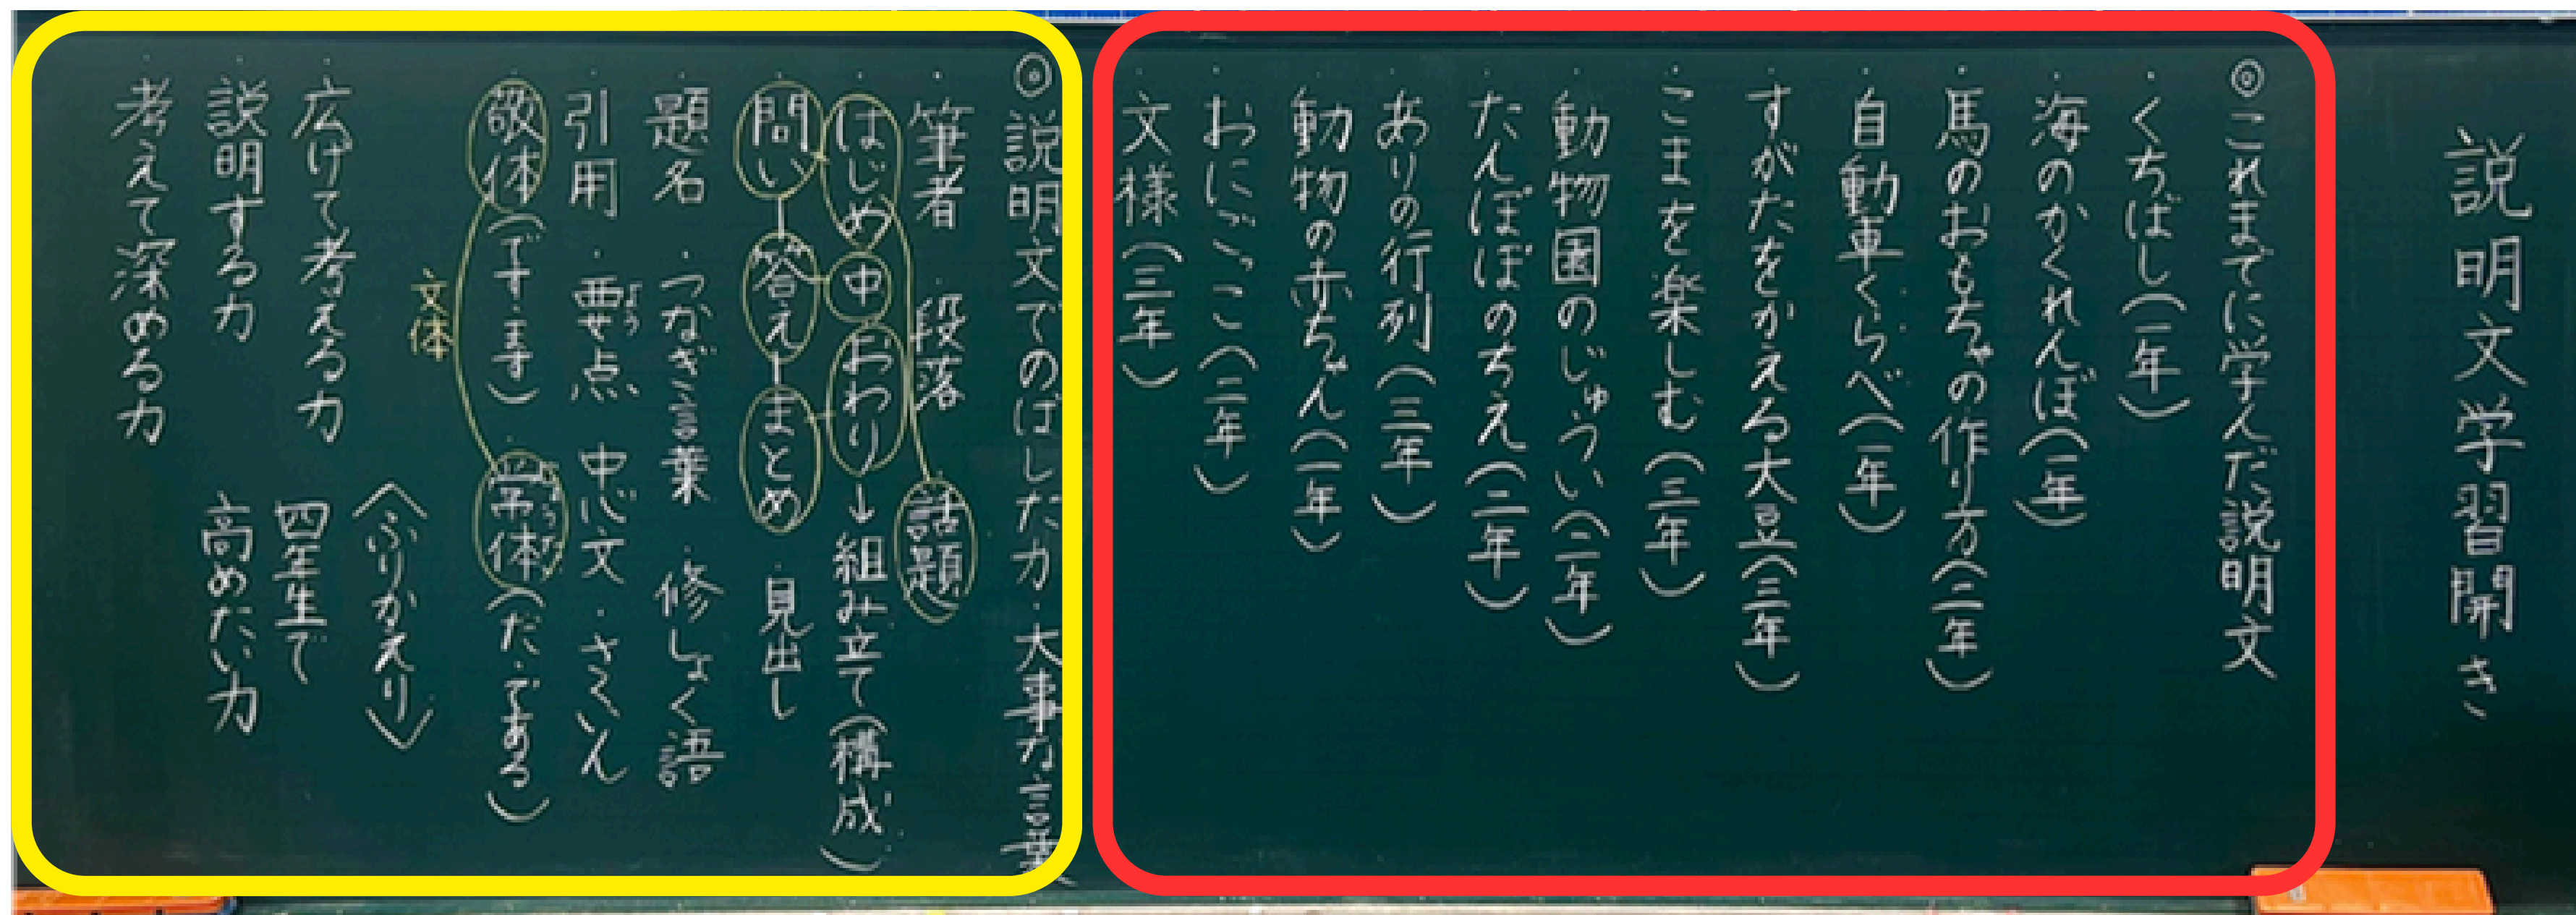 説明文学習開き
◎これまでに学んだ説明文
・くちばし(一年)
・海のかくれんぼ(一年)
・馬のおもちゃの作り方(二年)
・自動車くらべ(一年)
・すがたをかえる大豆(三年)
・こまを楽しむ(三年)
・動物園のじゅうい(二年)
・たんぽぽのちえ(二年)
・ありの行列(三年)
・動物の赤ちゃん(一年)
・おにごっこ(二年)
・文様(三年)
◎説明文でのばした力・大事な言葉
・筆者・段落・話題
・はじめ 中 おわり→組み立て(構成)
・問い 答え まとめ・見出し
・題名・つなぎ言葉・修しょく語
・引用・要点・中心文・さくいん
よう
・敬体(です・ます)・常体(だ・である)
じょうたい
文体
・広げて考える力
・説明する力
・考えて深める力
〈ふりかえり〉
四年生で
高めたい力